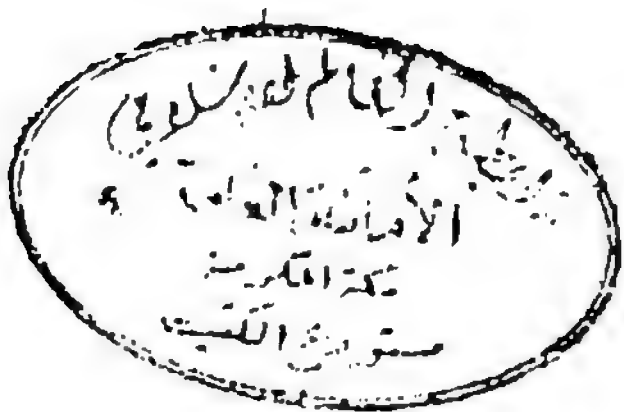 رابطة العالم الإسلامي
الأمانة العامة
مكة المكرمة
الكتب